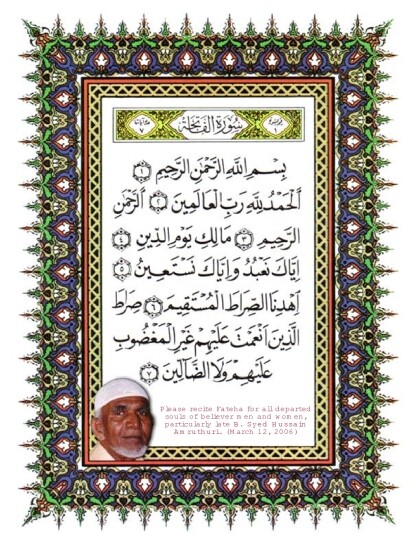 سُورَةُ الفَاتِحَة
بِسْمِ اللَّهِ الرَّحْمَٰنِ الرَّحِيمِ ١
الْحَمْدُ لِلَّهِ رَبِّ الْعَالَمِينَ ٢ الرَّحْمَٰنِ
الرَّحِيمِ ٣ مَالِكِ يَوْمِ الدِّينِ ٤
إِيَّاكَ نَعْبُدُ وَإِيَّاكَ نَسْتَعِينُ ٥
اهْدِنَا الصِّرَاطَ الْمُسْتَقِيمَ ٦ صِرَاطَ
الَّذِينَ أَنْعَمْتَ عَلَيْهِمْ غَيْرِ الْمَغْضُوبِ
عَلَيْهِمْ وَلَا الضَّالِّينَ ٧
Please recite Fateha for all departed
souls of believer men and women,
particularly late B. Syed Hussain
Amruthuri. (March 12, 2006)